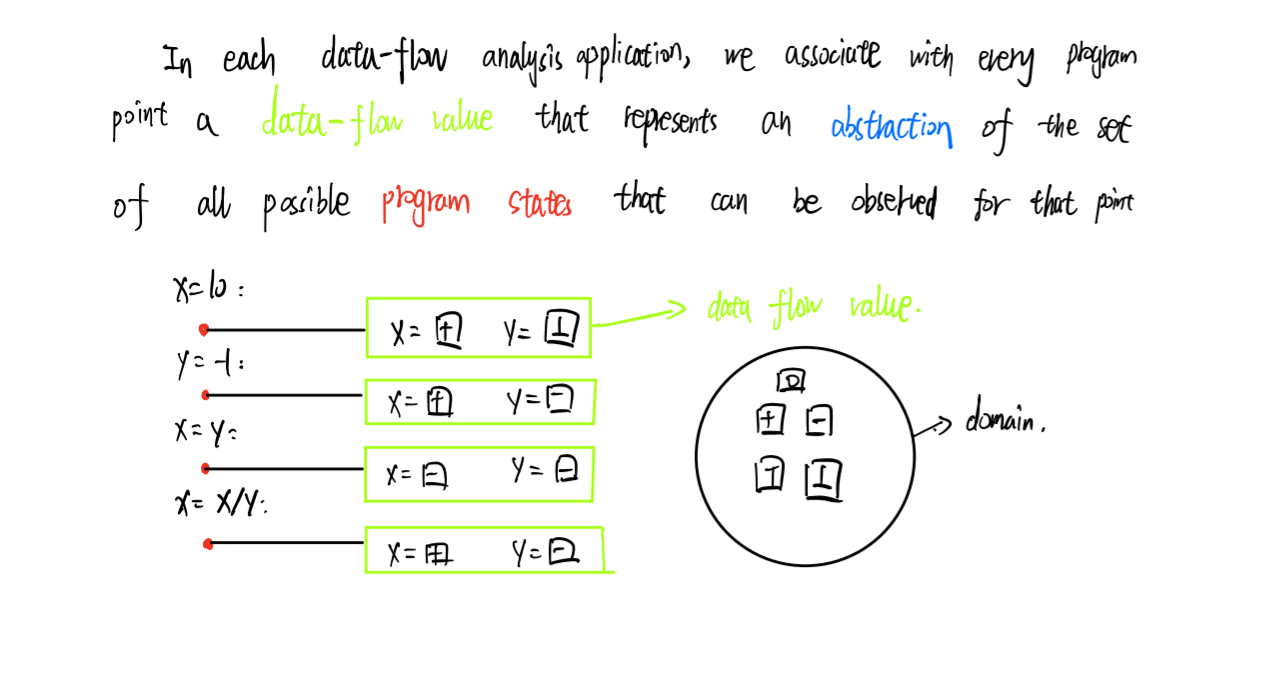 In each data-flow analysis application, we associate with every program
point a data-flow value that represents an abstraction of the set
of all possible program states that can be observed for that point
x=10:
x=+ y=⊥
data flow value.
y=-1:
x=+ y=-
x=y:
x=- y=-
x=x/y:
x=+ y=-
0
+ -
⊤ ⊥
domain.